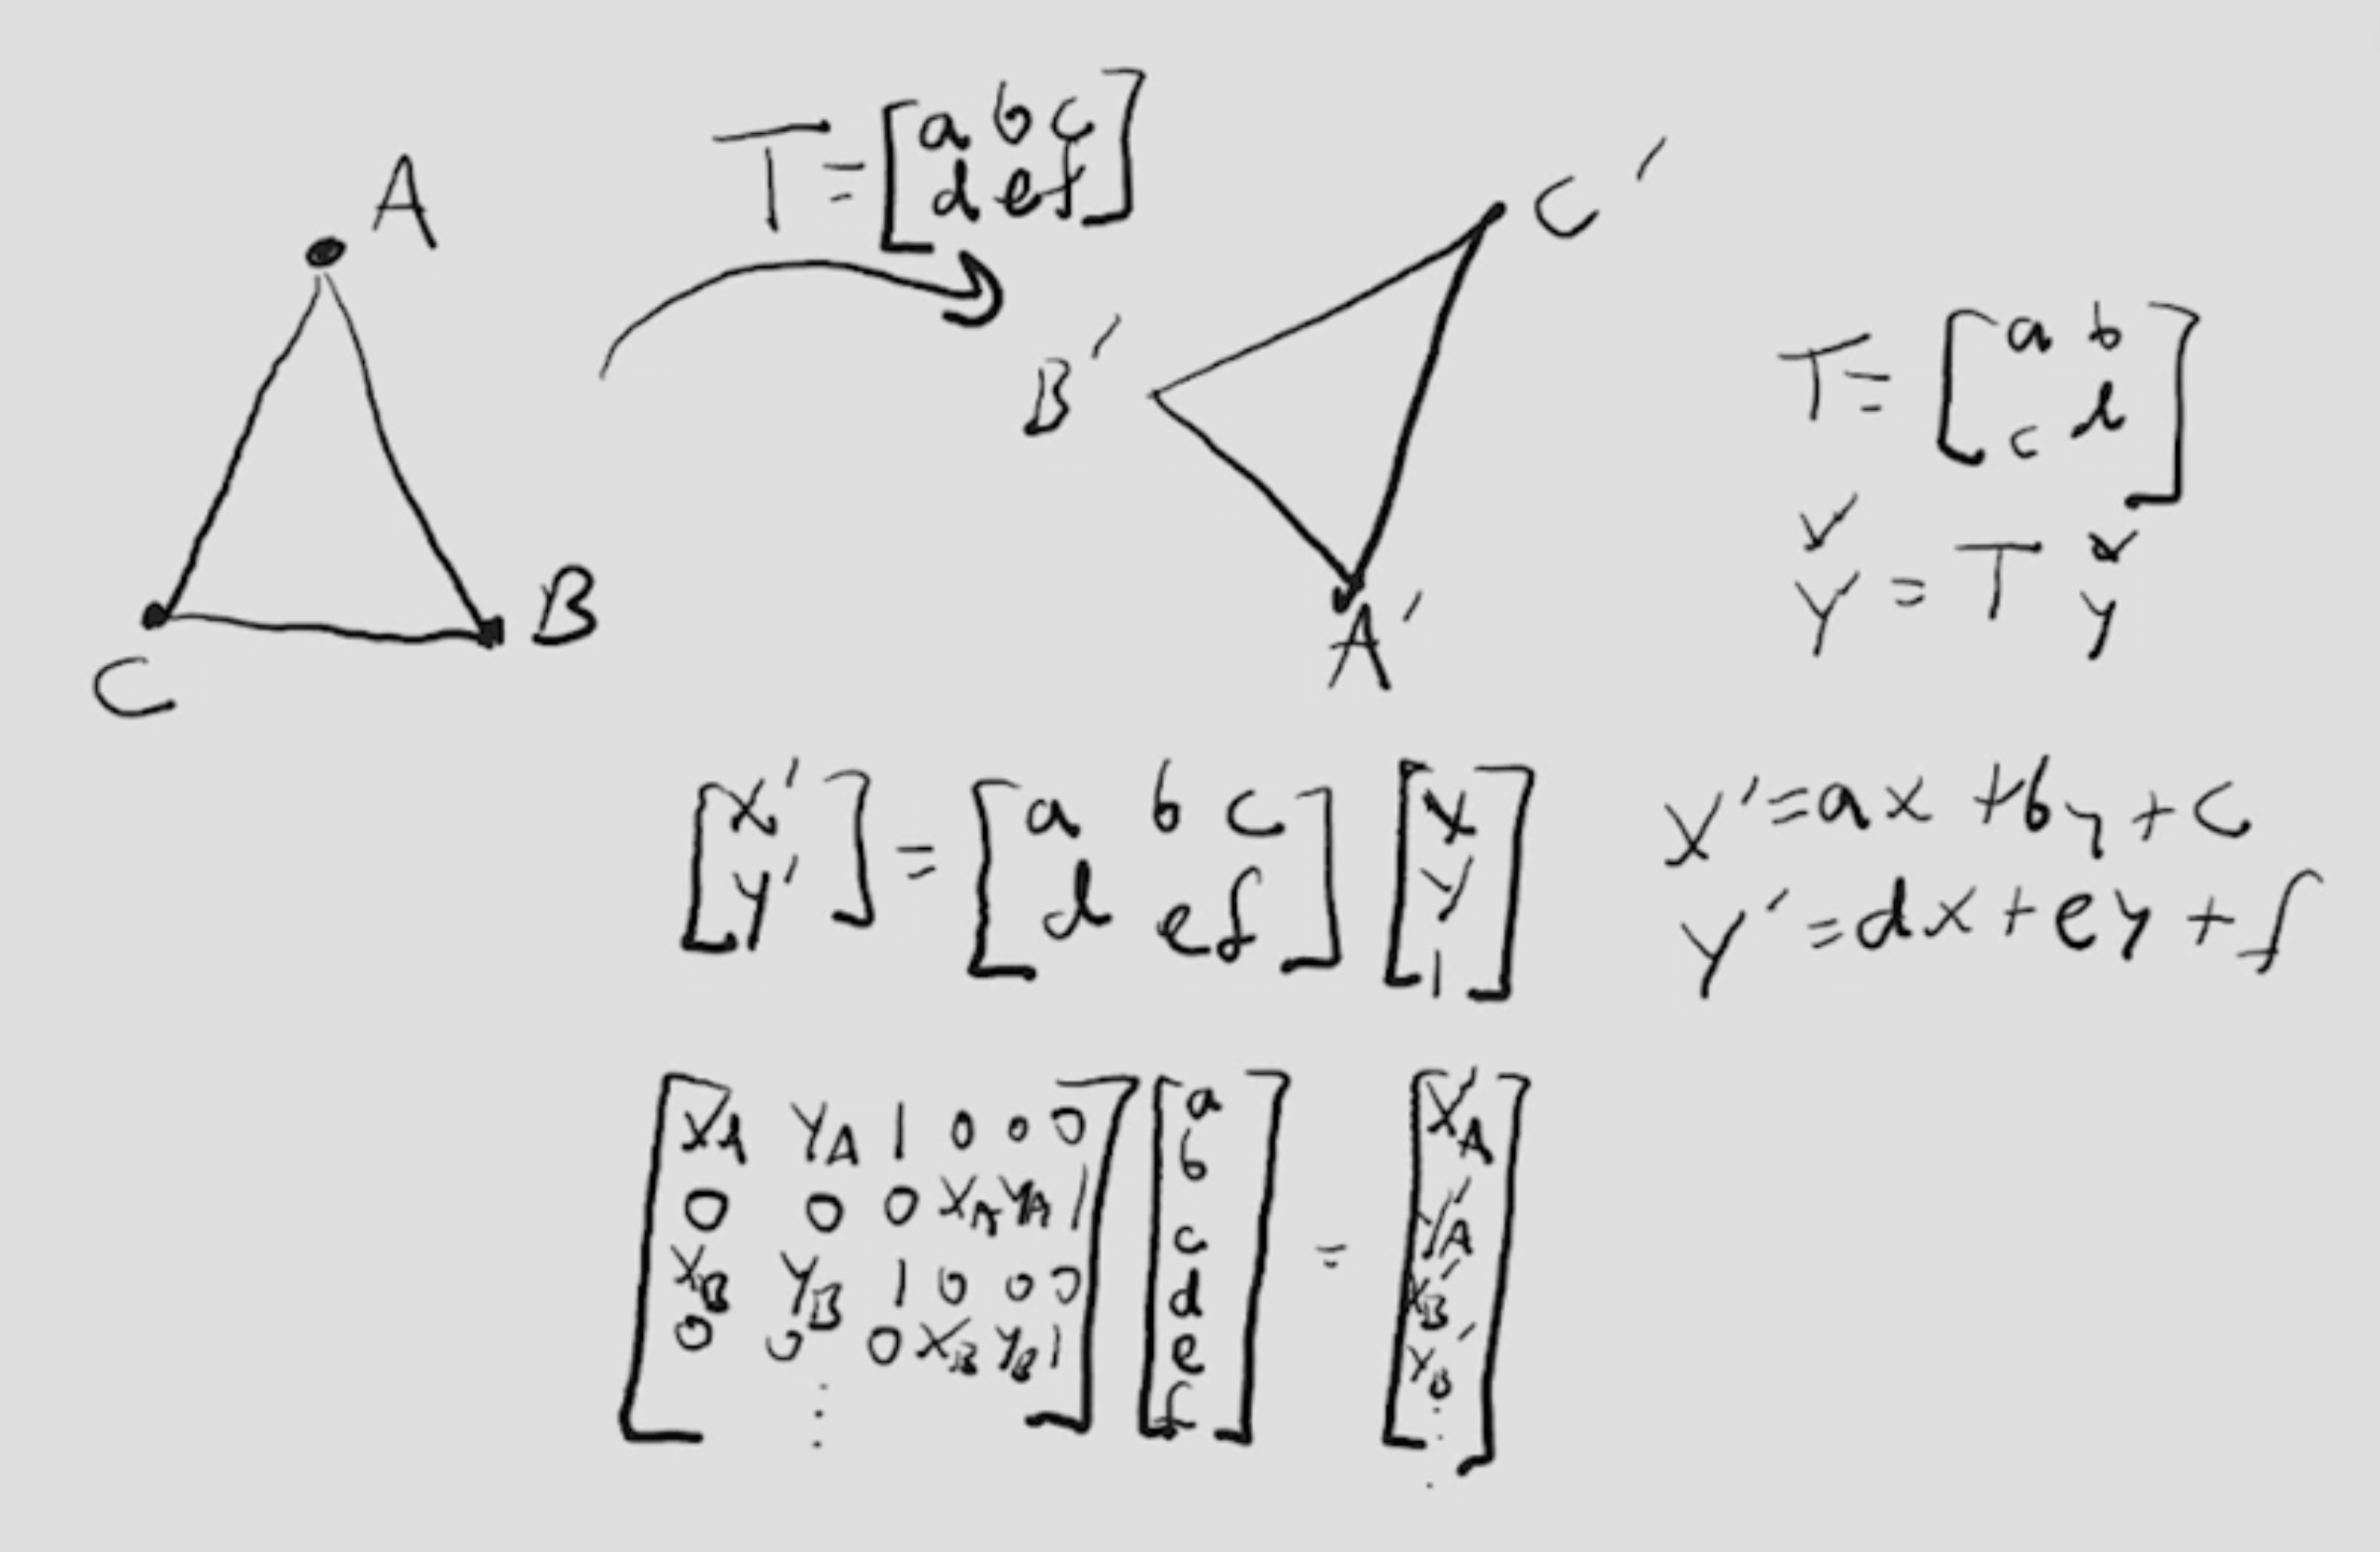 A
T = [a b c
d e f]
C'
B'
B
C
A'
T = [a b
c d]
Y = T y
[x'
y'] = [a b c
d e f] [x
y
1]
x' = ax + by + c
y' = dx + ey + f
[x_A y_A 1 0 0 0
0 0 0 x_A y_A 1
x_B y_B 1 0 0 0
0 0 0 x_B y_B 1
⋮]
[a
b
c
d
e
f]
=
[x'_A
y'_A
x'_B
y'_B
⋮]